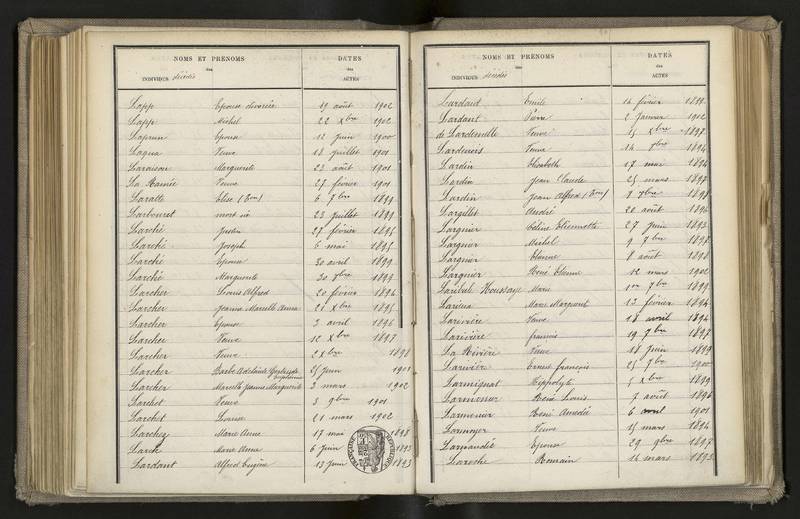 NOMS ET PRÉNOMS DATES
des des
INDIVIDUS décédés ACTES
Lapp Epouse divorcée 19 août 1902
Lapp Michel 22 Xbre 1902
Laprun Epoux 12 juin 1900
Laqua Veuve 18 juillet 1901
Laraison Marguerite 23 août 1901
La Ramée Veuve 27 février 1901
Laratte Elise 6 7bre 1899
Larbouret mort né 28 juillet 1899
Larché Justin 27 février 1895
Larché Joseph 6 mai 1895
Larché Epouse 30 avril 1899
Larché Marguerite 30 7bre 1899
Larcher Louis Alfred 20 février 1894
Larcher Jeanne Marcelle Anna 21 Xbre 1895
Larcher Epouse 3 avril 1896
Larcher Veuve 12 Xbre 1897
Larcher Veuve 2 Xbre 1898
Larcher Barbe Adelaïde Gertrude 25 juin 1901
Larcher Marcelle Jeanne Marguerite 3 mars 1902
Larchet Veuve 3 9bre 1901
Larchet Louise 21 mars 1902
Larchez Marie Anne 17 mai 1898
Larck Marie Anna 6 juin 1893
Lardant Alfred Eugène 13 juin 1893
NOMS ET PRÉNOMS DATES
des des
INDIVIDUS décédés ACTES
Lardaud Emile 14 février 1899
Lardant Pierre 2 Janvier 1902
de Lardemelle Veuve 15 Xbre 1897
Lardenois Veuve 14 7bre 1894
Lardin Elisabeth 17 mai 1894
Lardin Jean Claude 25 mars 1897
Lardin Jean Alfred 8 7bre 1898
Largillet André 20 août 1896
Larguier Céline Etiennette 27 juin 1893
Larguier Michel 9 7bre 1897
Larguier Etienne 8 août 1898
Larguier René Etienne 12 mars 1902
Laribal Houssaye Marie 1er 7bre 1899
Larieux Marie Margueret 13 février 1894
Larivière Veuve 18 avril 1894
Larivière francois 19 7bre 1897
La Rivière Veuve 18 juin 1899
Larivière Ernest françois 25 7bre 1900
Larmignat Hippolyte 5 Xbre 1899
Larmonier René Louis 7 août 1896
Larmonier René Amédée 6 avril 1901
Larmoyer Veuve 15 mars 1894
Larnaudie Epouse 29 9bre 1897
Laroche Romain 14 mars 1893